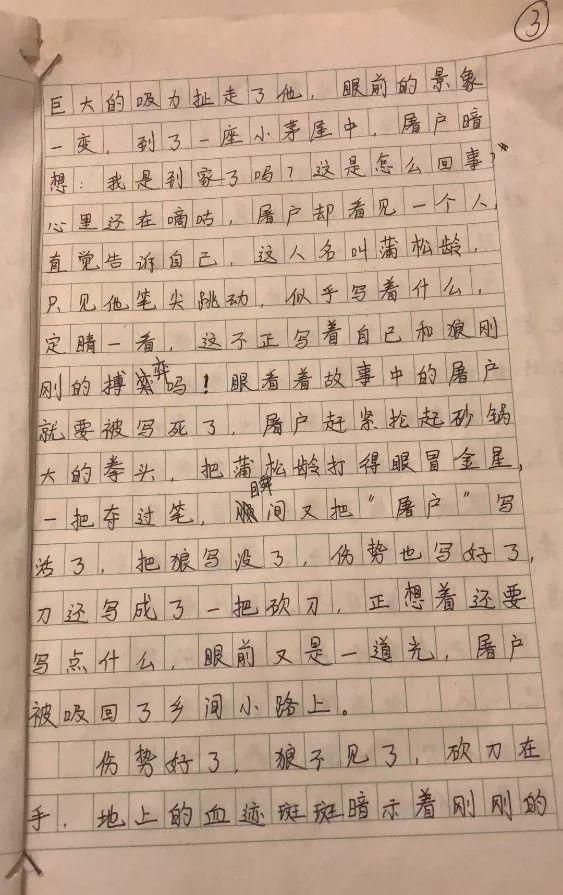 ③
巨大的吸力扯走了他，眼前的景象
一变，到了一座小茅屋中，屠户暗
想：我是到家了吗？这是怎么回事？"
心里还在嘀咕，屠户却看见一个人，
直觉告诉自己，这人名叫蒲松龄，
只见他笔尖跳动，似乎写着什么，
定睛一看，这不正写着自己和狼刚
刚的搏弈吗！眼看着故事中的屠户
就要被写死了，屠户赶紧抡起砂锅
大的拳头，把蒲松龄打得眼冒金星，
一把夺过笔，瞬间又把"屠户"写
活了，把狼写没了，伤势也写好了，
刀还写成了一把砍刀，正想着还要
写点什么，眼前又是一道光，屠户
被吸回了乡间小路上。
伤势好了，狼不见了，砍刀在
手，地上的血迹斑斑暗示着刚刚的